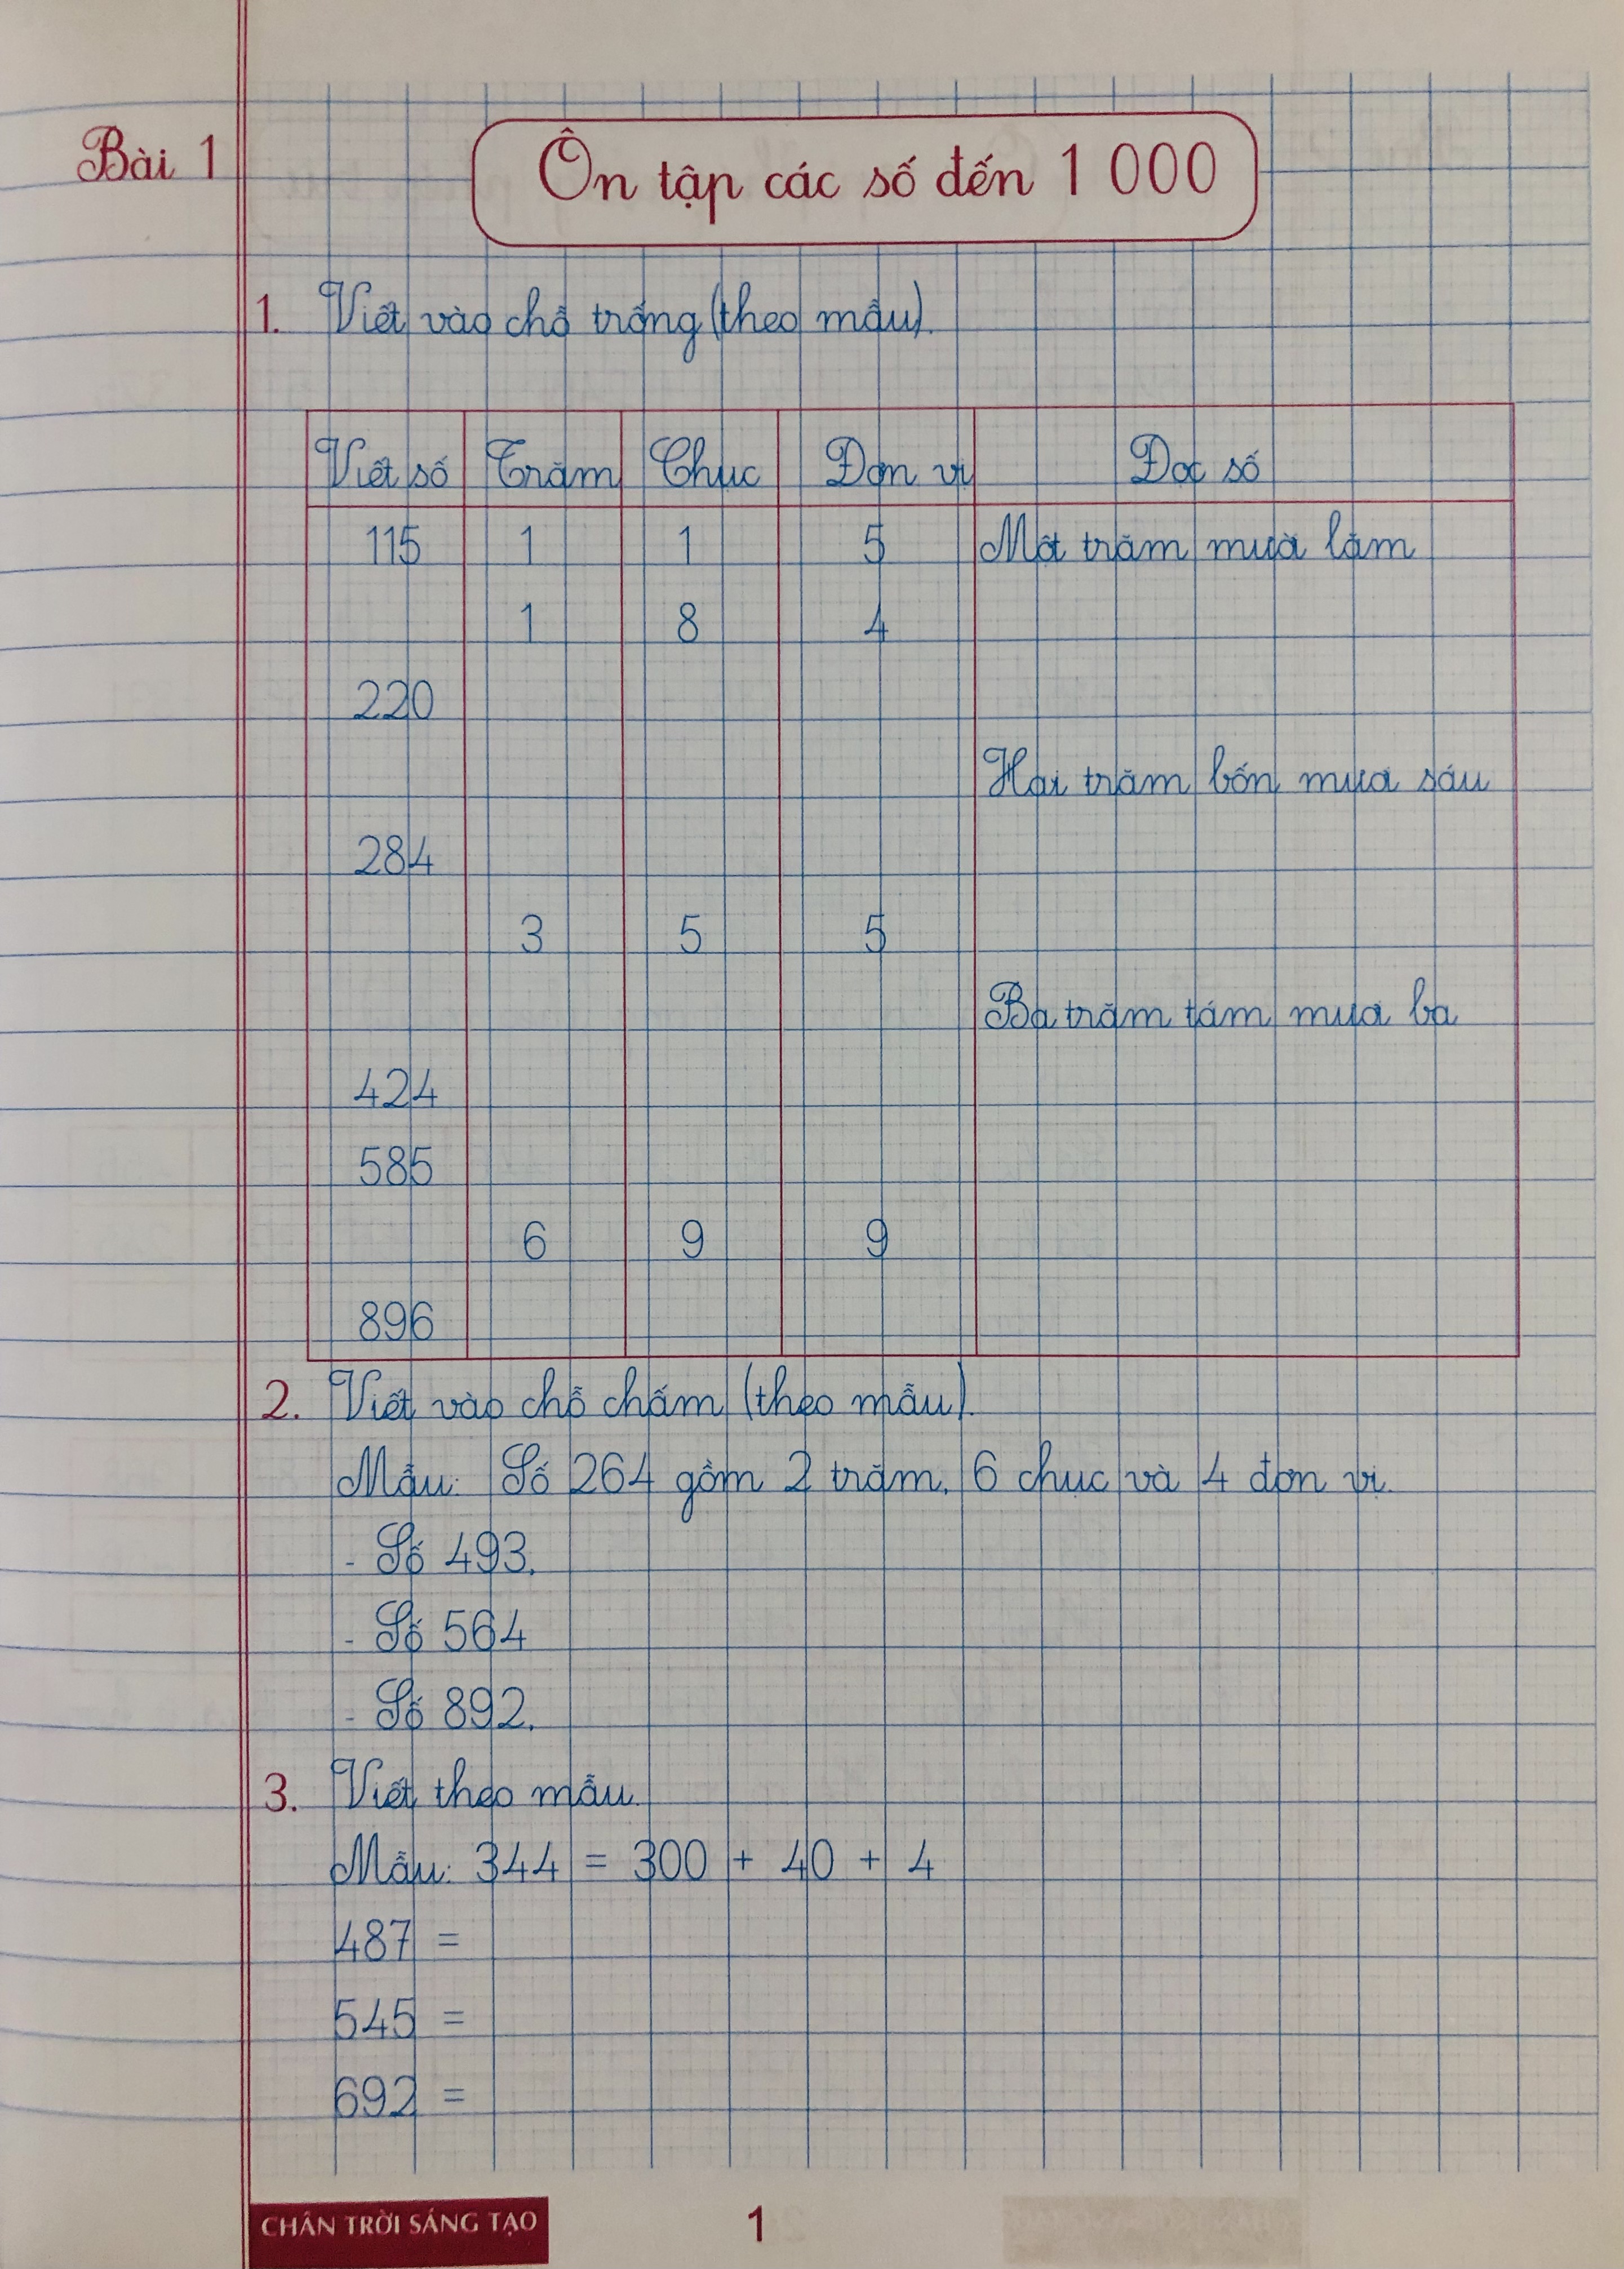 Bài 1
Ôn tập các số đến 1 000
1. Viết vào chỗ trống (theo mẫu).
Viết số Trăm Chục Đơn vị Đọc số
115 1 1 5 Một trăm mười lăm
1 8 4
220
Hai trăm bốn mươi sáu
284
3 5 5
Ba trăm tám mươi ba
424
585
6 9 9
896
2. Viết vào chỗ chấm (theo mẫu).
Mẫu: Số 264 gồm 2 trăm, 6 chục và 4 đơn vị.
- Số 493.
- Số 564
- Số 892.
3. Viết theo mẫu.
Mẫu: 344 = 300 + 40 + 4
487 =
545 =
692 =
CHÂN TRỜI SÁNG TẠO 1